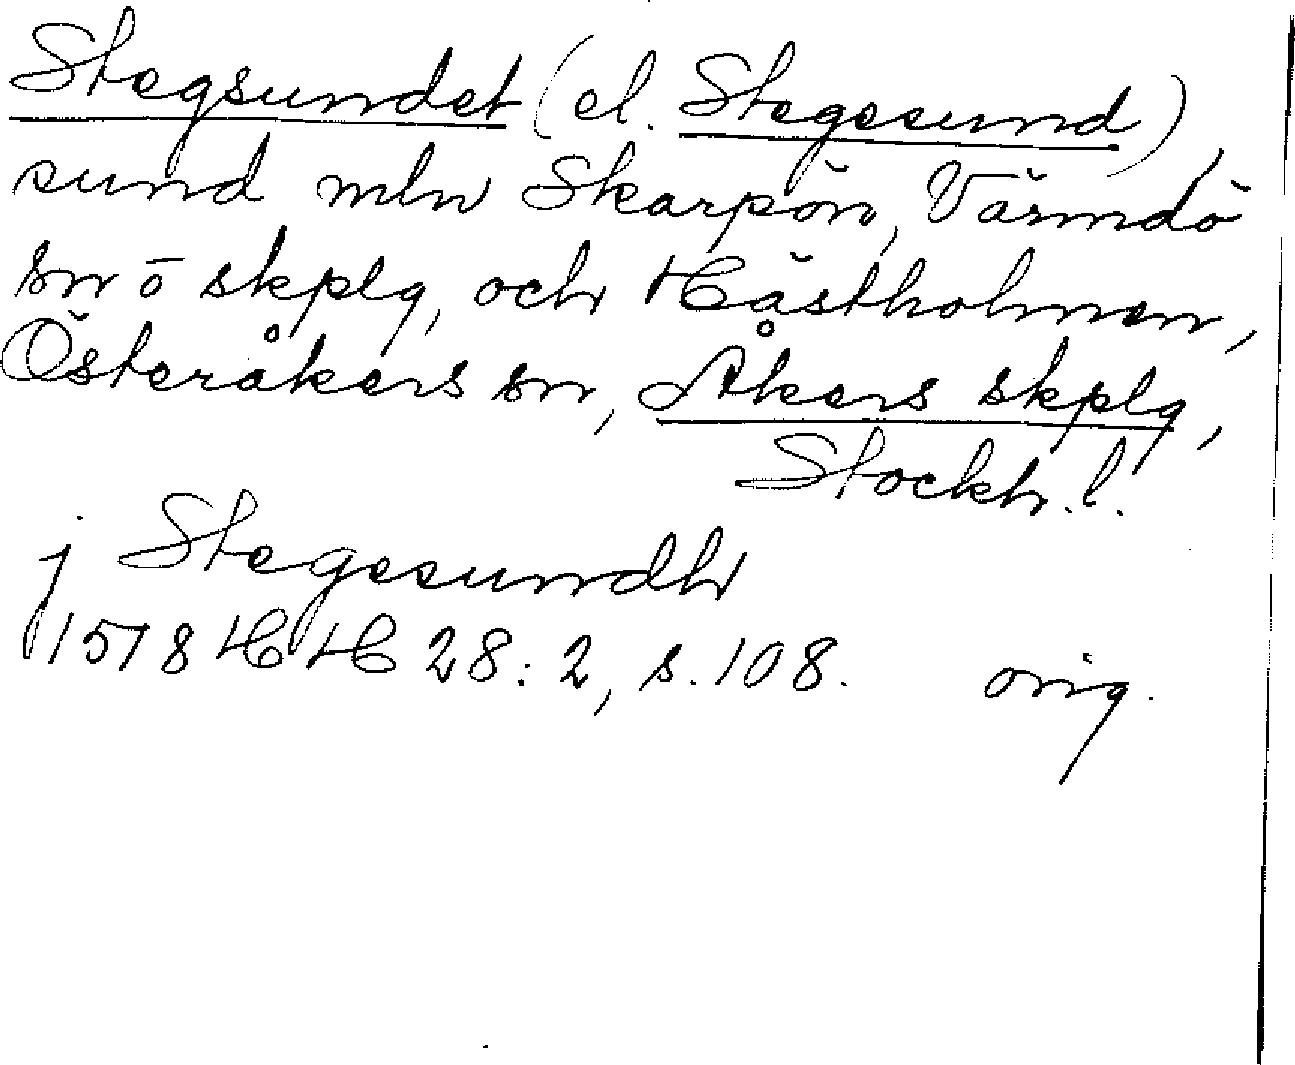 Stegsundet (el. Stegesund),
sund mln Skarpön, Värmdö
sn o skplg, och Hästholmen,
Österåkers sn, Åkers skplg,
Stockh. l.
j Stegesundh
1578 HH 28:2, s. 108. orig.